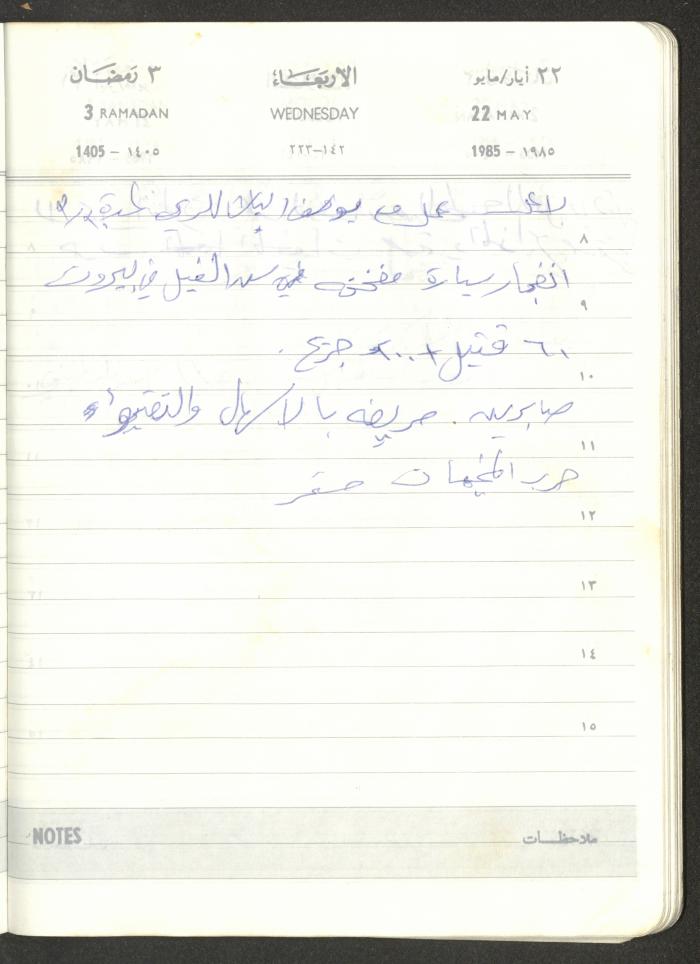 ٢٢ أيار/مايو الأربعاء ٣ رمضان
22 MAY WEDNESDAY 3 RAMADAN
1985 - ١٩٨٥ ١٤٢-٢٢٣ 1405 - ١٤٠٥
عمل يوسف
٨
انفجار سيارة مفخخة في سن الفيل في بيروت
٩
٦٠ قتيل + ٢٠٠ جريح.
١٠
صابرين. مريضه بالاسهال والتقيوء
١١
حرب المخيمات مستمر
١٢
١٣
١٤
١٥
NOTES ملاحظات